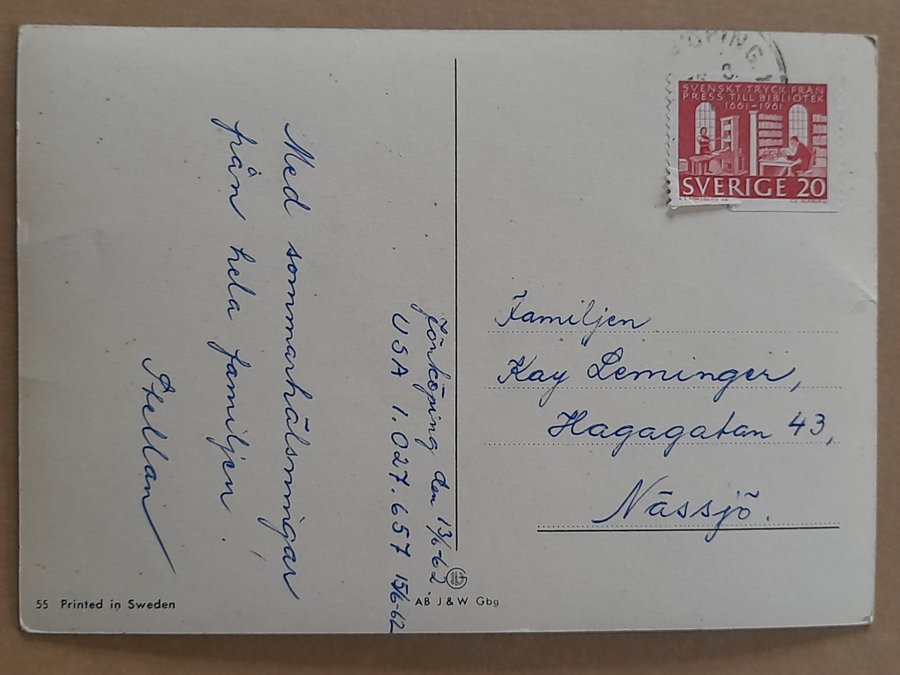 Jönköping den 13/6-62.
USA 1.027.657 15/6-62
Med sommarhälsningar
från hela familjen!
Stellan
KÖPING 1
SVENSKT TRYCK FRÅN
PRESS TILL BIBLIOTEK
1661-1961
SVERIGE 20
Familjen
Kay Leminger,
Hagagatan 43,
Nässjö.
55 Printed in Sweden
AB J & W Gbg